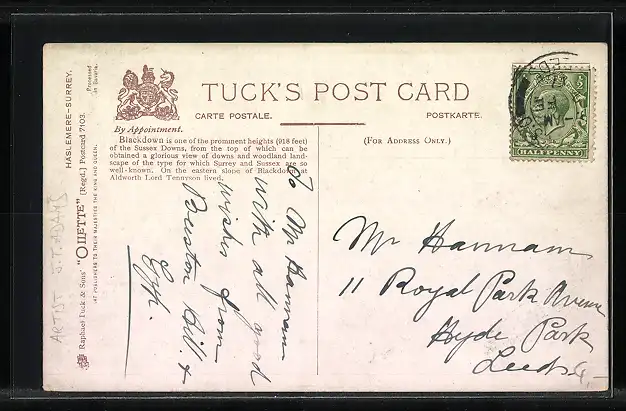 TUCK'S POST CARD
CARTE POSTALE.
POSTKARTE.
By Appointment.
(FOR ADDRESS ONLY.)
Blackdown is one of the prominent heights (918 feet)
of the Sussex Downs, from the top of which can be
obtained a glorious view of downs and woodland land-
scape of the type for which Surrey and Sussex are so
well-known. On the eastern slope of Blackdown at
Aldworth Lord Tennyson lived.
To Mr Hannam
with all good
wishes from
Beeston Hill. &
Mr Hannam
11 Royal Park Avenue
Hyde Park
Leeds
4,-
HALF PENNY
HASLEMERE-SURREY.
Processed
in Bavaria.
Raphael Tuck & Sons' "OILETTE" [Regd.] Postcard 7103.
ART PUBLISHERS TO THEIR MAJESTIES THE KING AND QUEEN.
ARTIST J.T. ADAMS